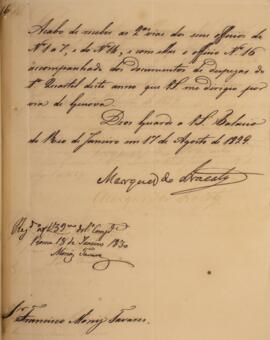 Acabo de receber as 2as vias dos seus officios de
Nº 1 a 7, e de Nº 14, e com ellas o officio Nº 16
acompanhado dos documentos de despezas do
1º Quartel deste anno que VS me dirigio por
via de Genova.
Deos Guarde a VS. Palacio
do Rio de Janeiro em 17 de Agosto de 1829.
Marquez de Aracaty
Roma 18 de Janeiro 1830
Moniz Tavares
Sr. Francisco Moniz Tavares.